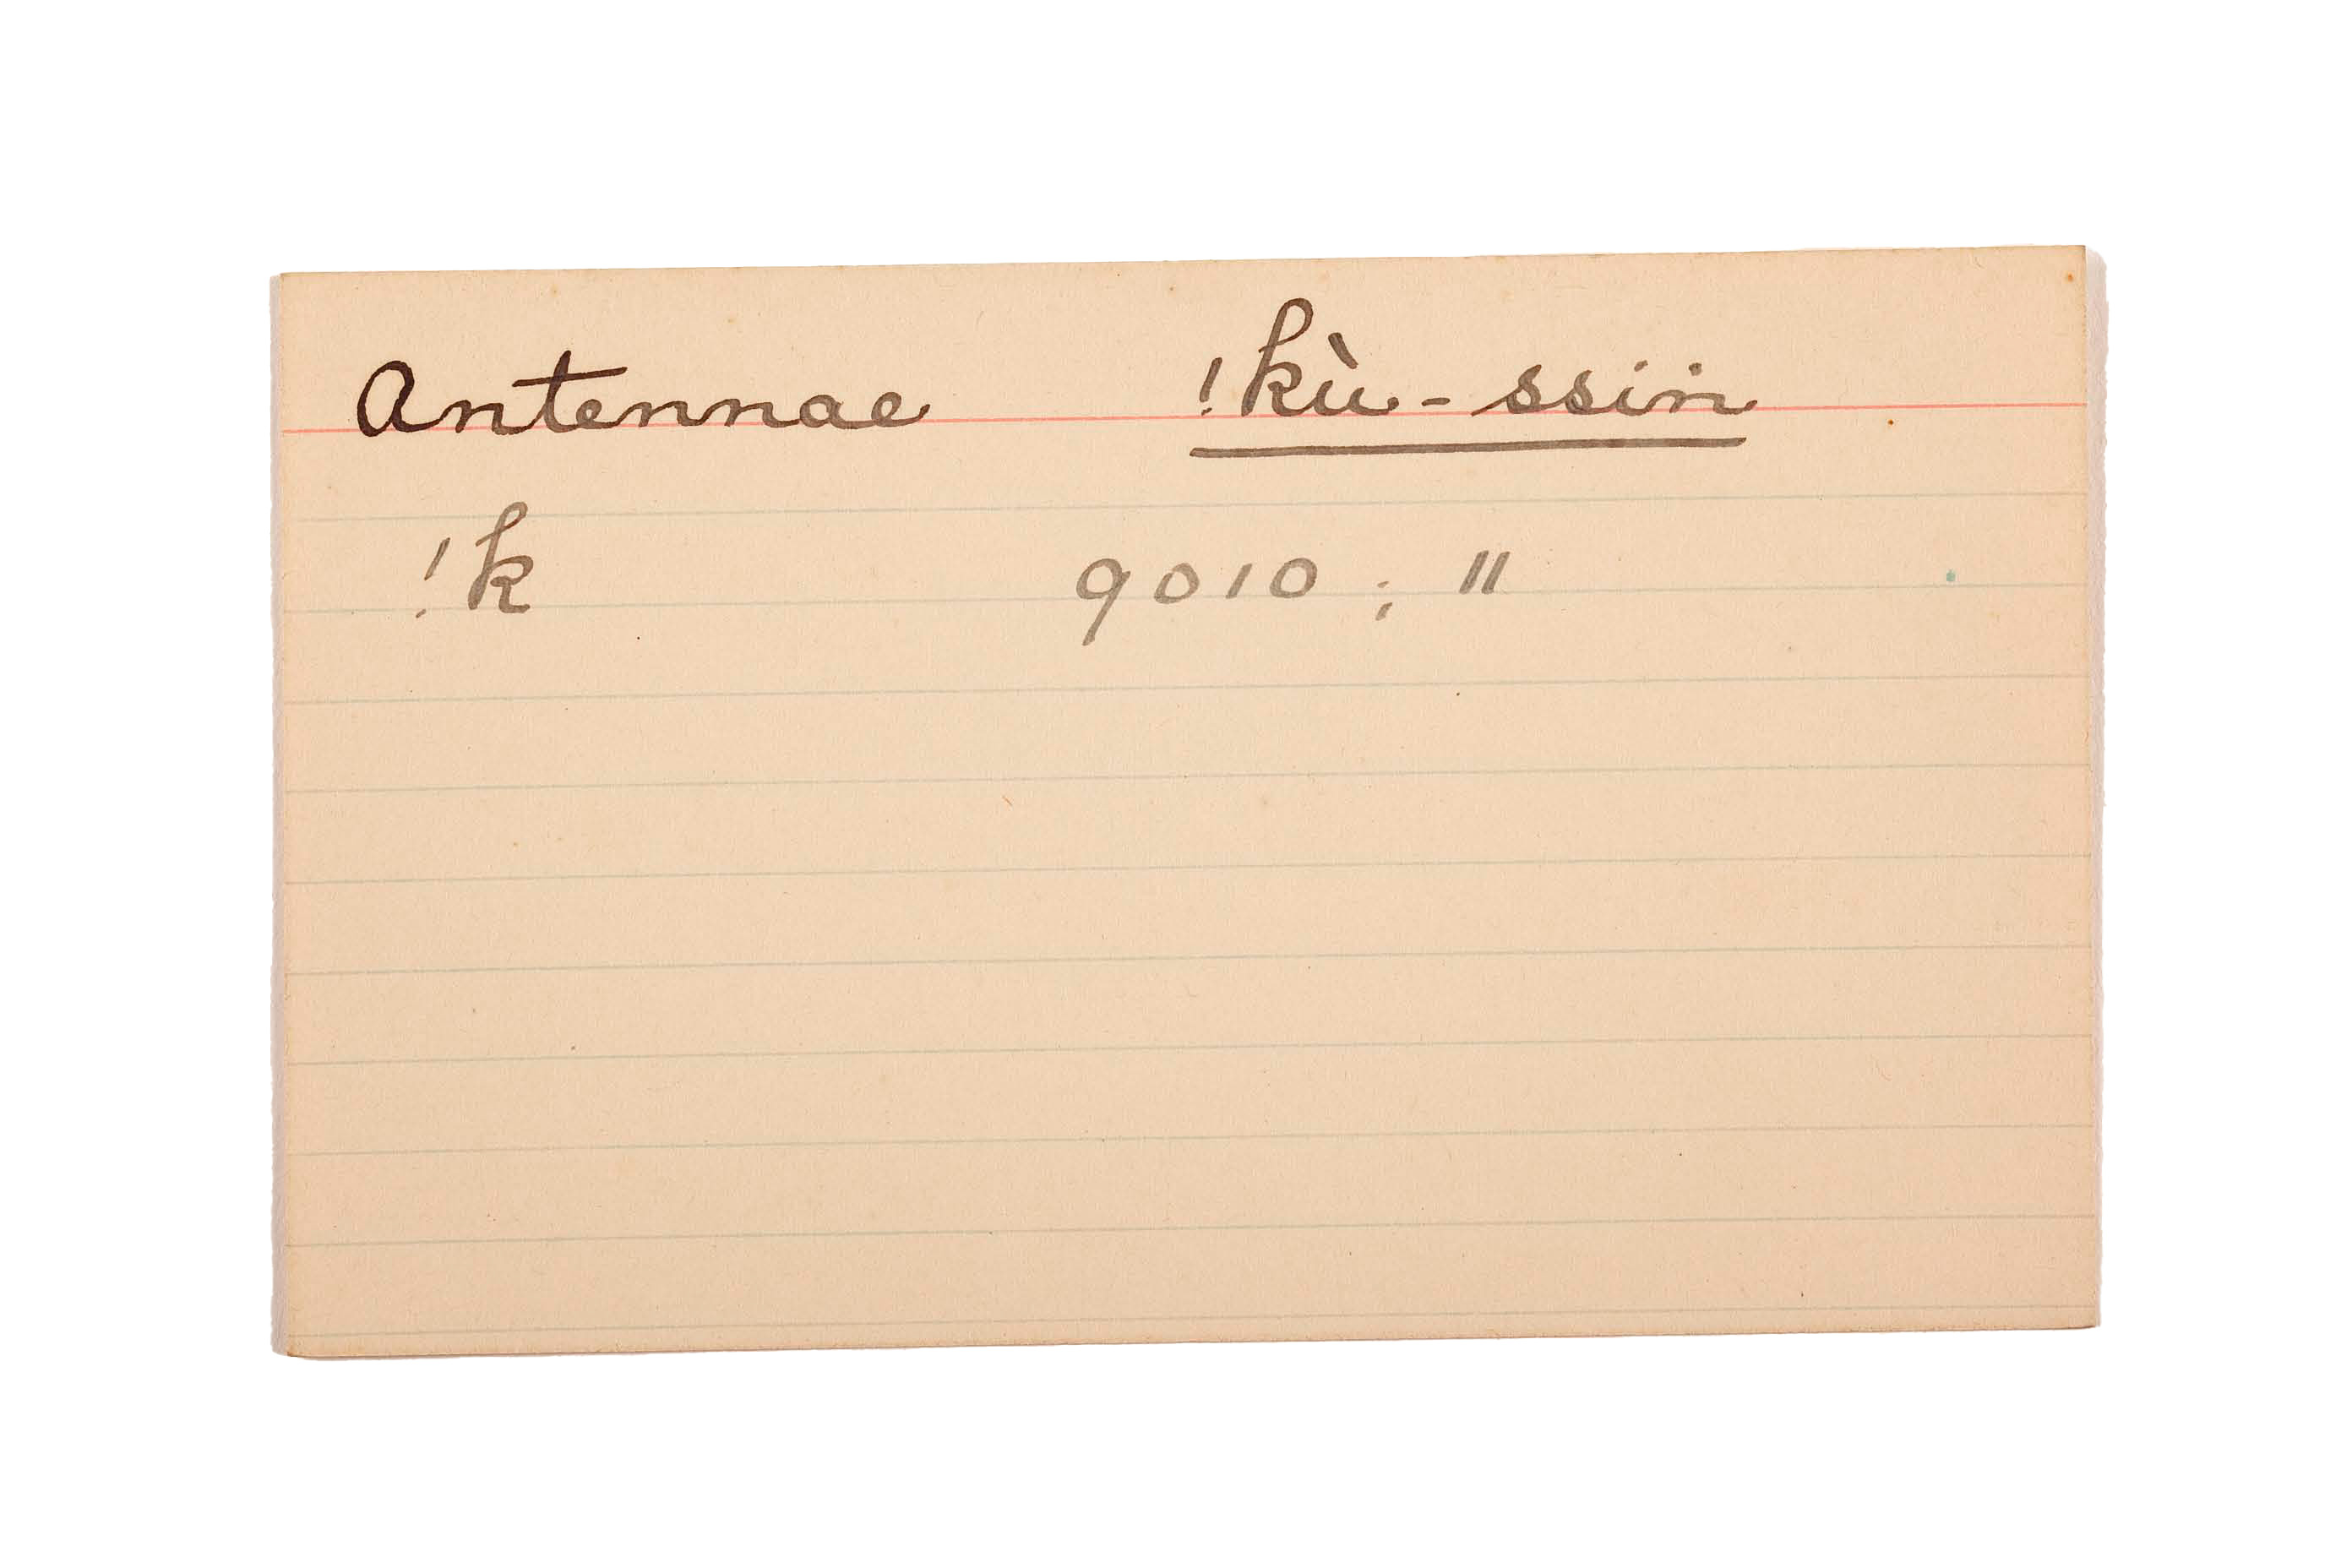 Antennae !kù-ssiṅ
!k 9010 ; 11